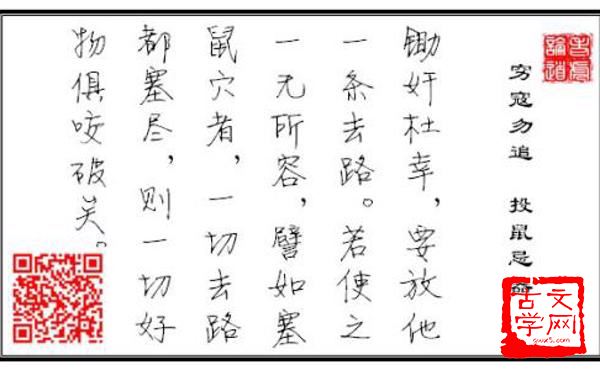 穷寇勿追 投鼠忌
锄奸杜幸，要放他
一条去路。若使之
一无所容，譬如塞
鼠穴者，一切去路
都塞尽，则一切好
物俱咬破矣。
古文学网